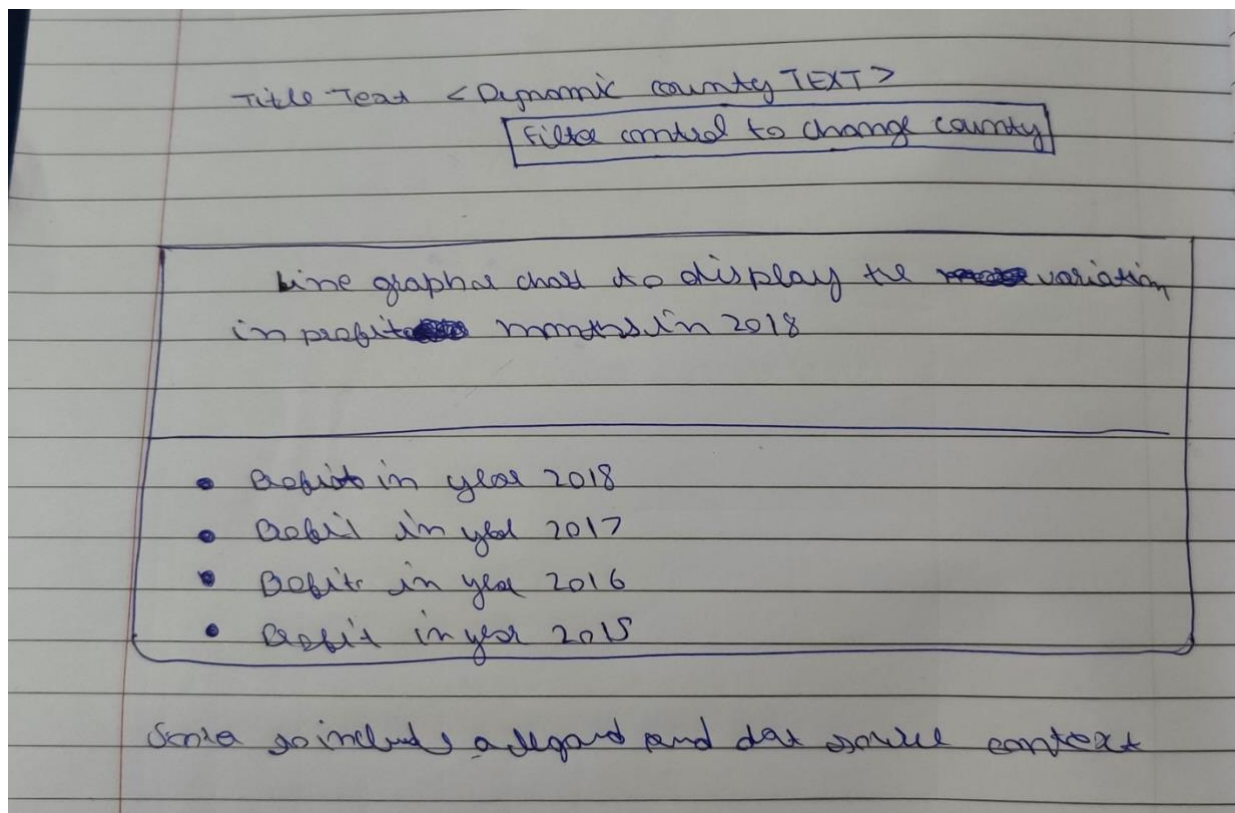 Title Text <Dynamic county TEXT>
Filter control to change county
Line graph chart to display the variation
in profit months in 2018
• Profit in year 2018
• Profit in year 2017
• Profit in year 2016
• Profit in year 2015
to include a legend and data source context